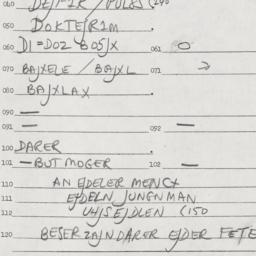 050 DOKTEJRIM .
060 DI=DOZ BOSJX 061 O
070 BAJXELE / BAJXL 071
080 BAJXLAX .
090 —
091 — 092 —
100 DARER .
101 — BUT MOGER 102 —
110 AN EJDELER MENCX
111 EJDELN JUNGNMAN
112 UHJSEJDLEN (150
120 BESER ZAJN DARER EJDER FETE